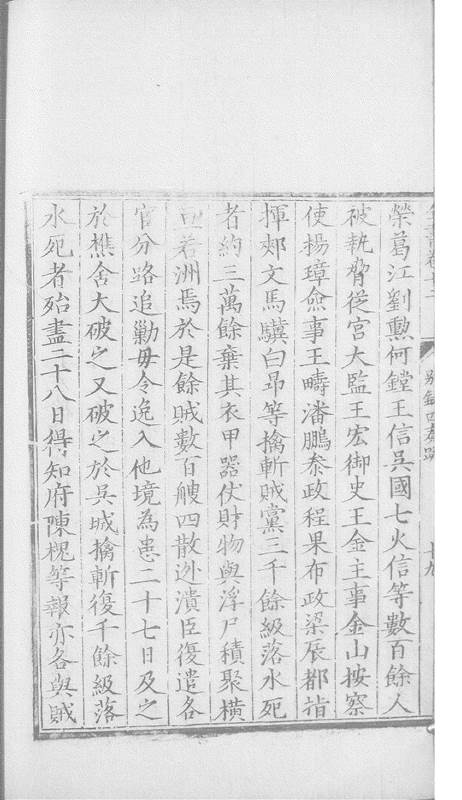 全書卷十二 別錄四奏疏 十九
榮葛江劉勲何鏜王信吳國七火信等數百餘人
被執脅從官大監王宏御史王金主事金山按察
使揚璋僉事王疇潘鵬叅政程果布政梁辰都指
揮郟文馬驥白昂等擒斬賊黨三千餘級落水死
者約三萬餘棄其衣甲器仗財物與浮尸積聚橫
亘若洲焉於是餘賊數百艘四散逃潰臣復遣各
官分路追勦毋令逸入他境為患二十七日及之
於樵舍大破之又破之於吳城擒斬復千餘級落
水死者殆盡二十八日得知府陳槐等報亦各與賊